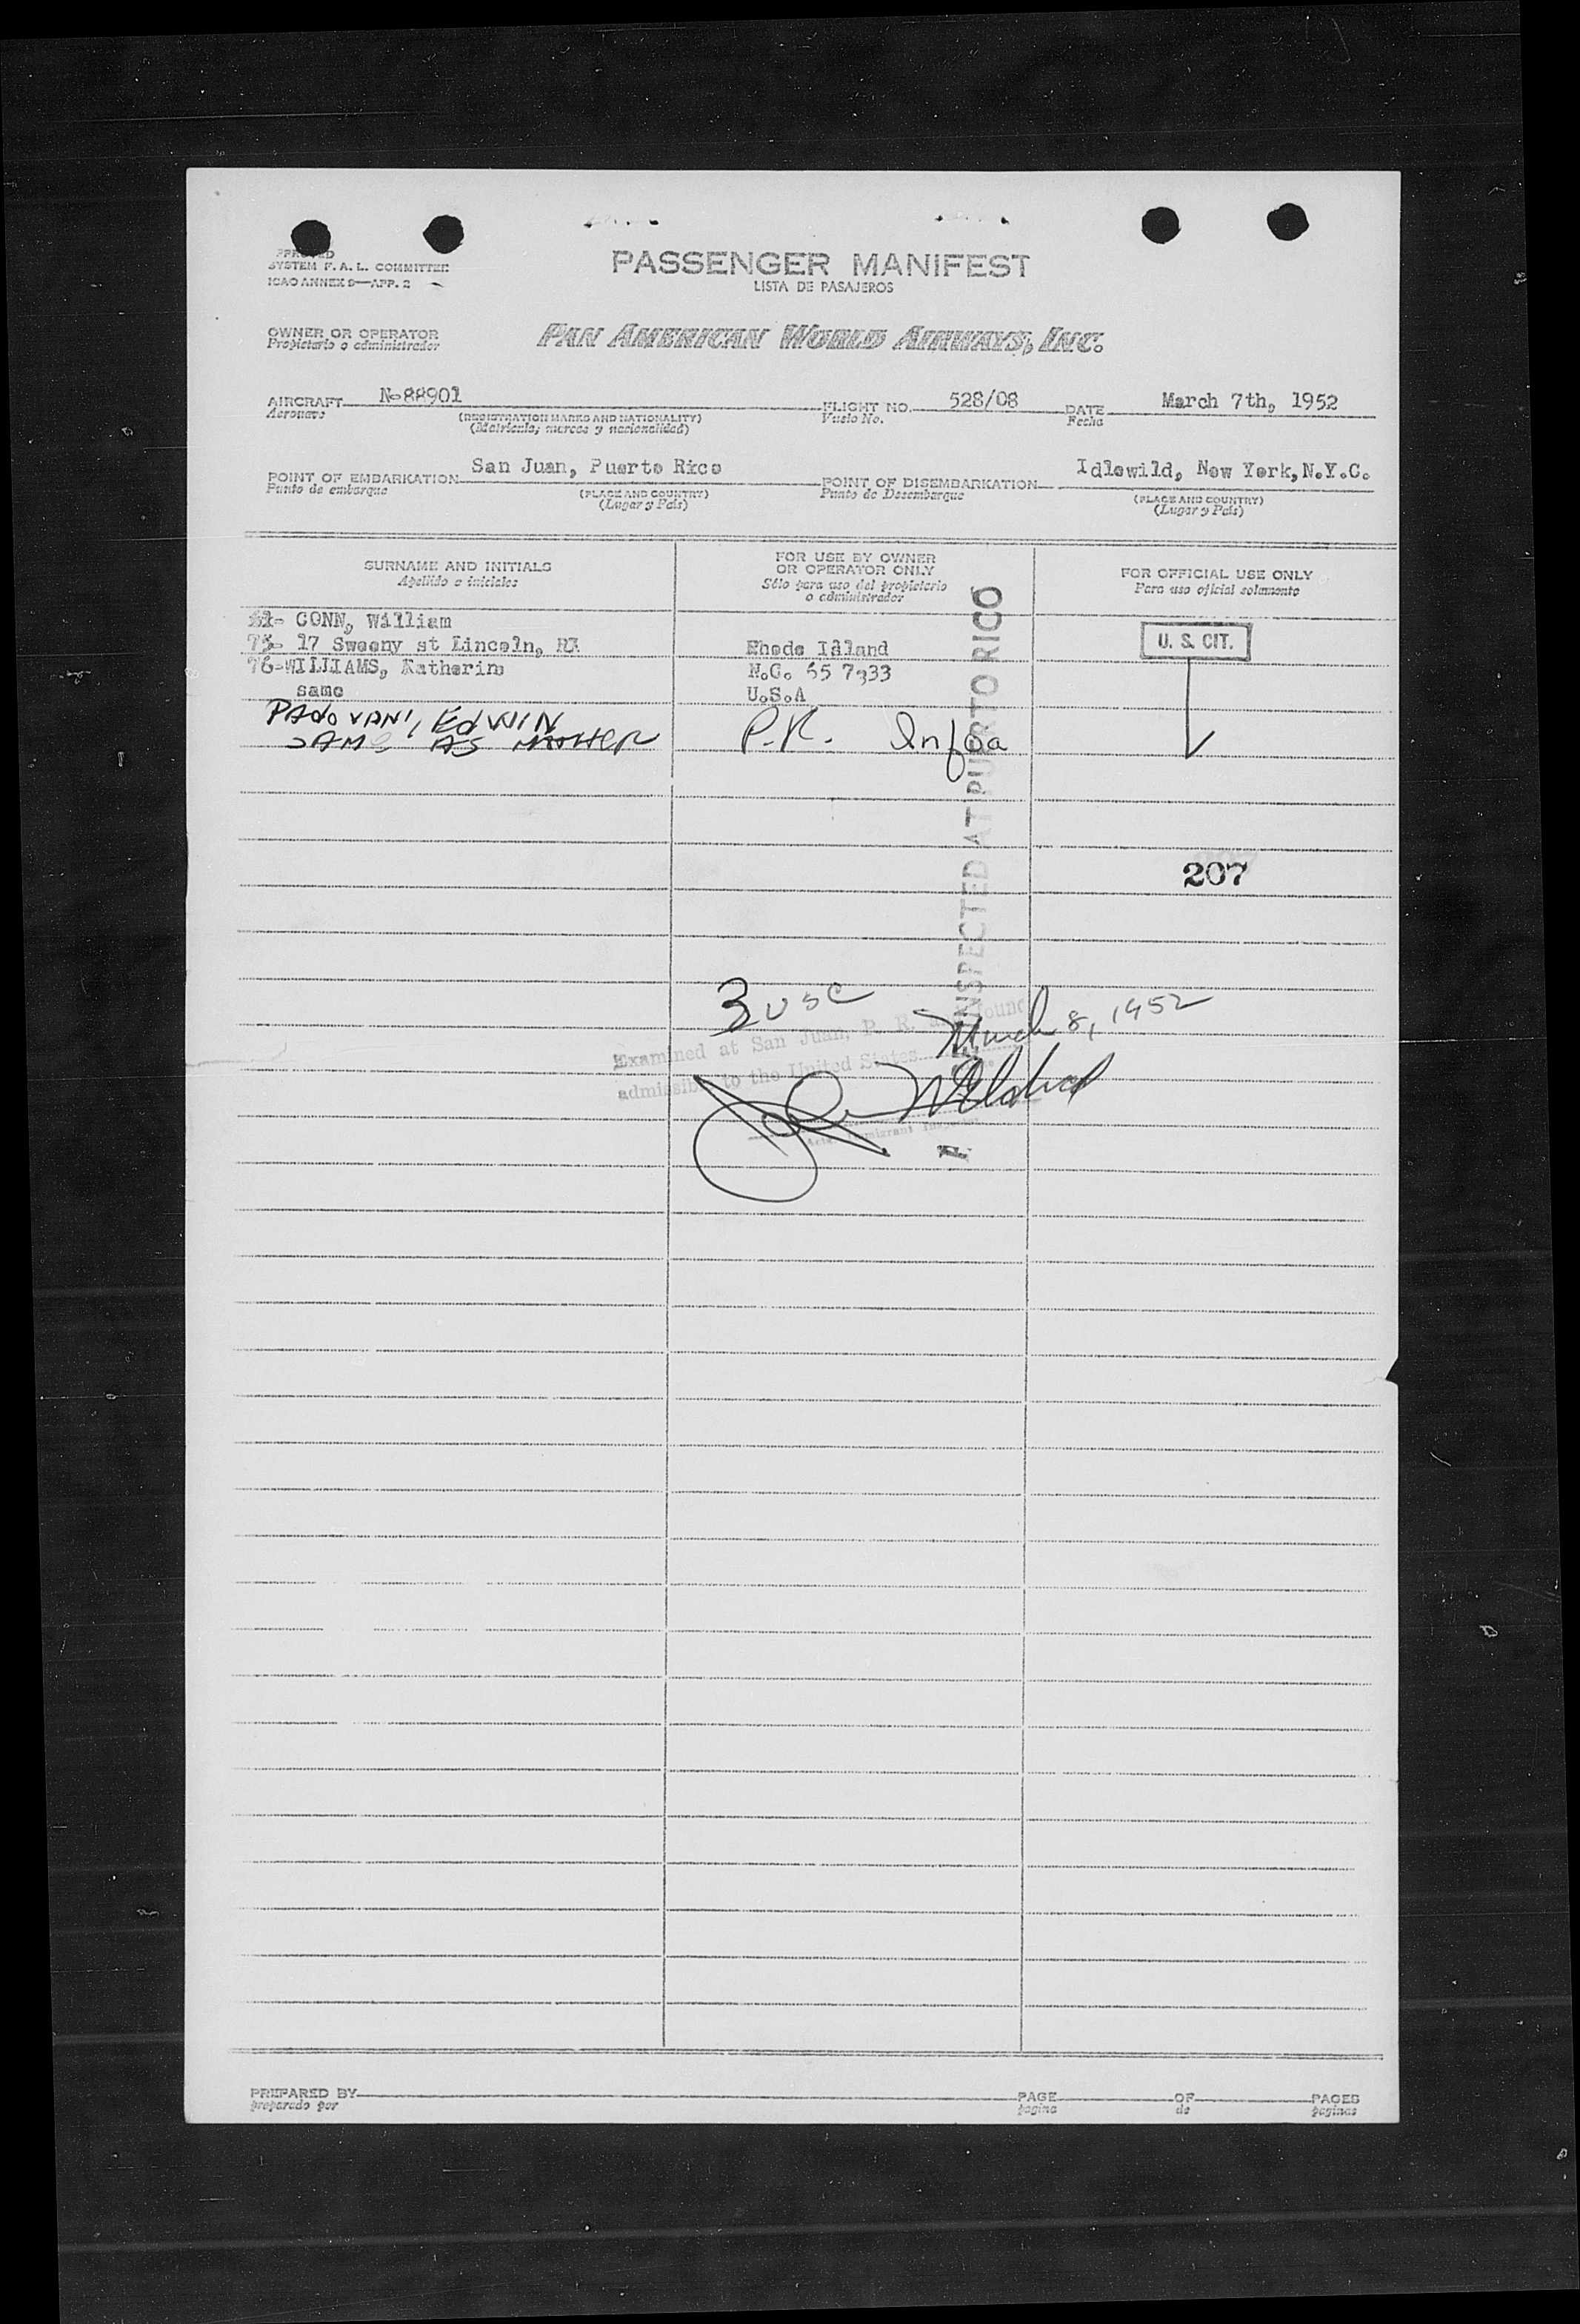 SYSTEM F. A. L. COMMITTEE
ICAO ANNEX 9—APP. 2
PASSENGER MANIFEST
LISTA DE PASAJEROS
OWNER OR OPERATOR
Propietario o administrador
PAN AMERICAN WORLD AIRWAYS, INC.
AIRCRAFT N-88901 FLIGHT NO. 528/08 DATE March 7th, 1952
Aeronave (REGISTRATION MARKS AND NATIONALITY) Vuelo No. Fecha
(Matricula; marcas y nacionalidad)
POINT OF EMBARKATION San Juan, Puerto Rico POINT OF DISEMBARKATION Idlewild, New York, N.Y.C.
Punto de embarque (PLACE AND COUNTRY) Punto de Desembarque (PLACE AND COUNTRY)
(Lugar y País) (Lugar y País)
SURNAME AND INITIALS
Apellido e iniciales
FOR USE BY OWNER
OR OPERATOR ONLY
Sólo para uso del propietario
o administrador
FOR OFFICIAL USE ONLY
Para uso oficial solamente
CONN, William
17 Sweeny st Lincoln, RI Rhode Island
76-WILLIAMS, Katherine N.C. 55 7333
same U.S.A
PADOVANI, EDWIN
SAME AS MOTHER P.R. Infoa
U. S. CIT.
207
INSPECTED AT PUERTO RICO
3 USC
March 8, 1952
Examined at San Juan, P. R. and found
admissible to the United States
Immigrant Inspector
PREPARED BY PAGE OF PAGES
preparado por pagina de paginas